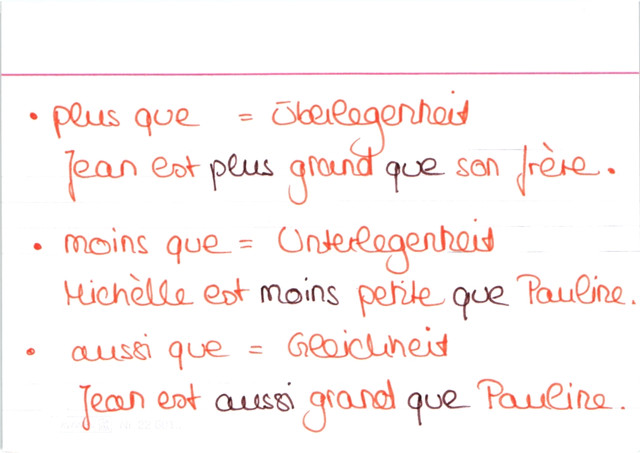 • plus que = Überlegenheit
Jean est plus grand que son frère.
• moins que = Unterlegenheit
Michèlle est moins petite que Pauline.
• aussi que = Gleichheit
Jean est aussi grand que Pauline.